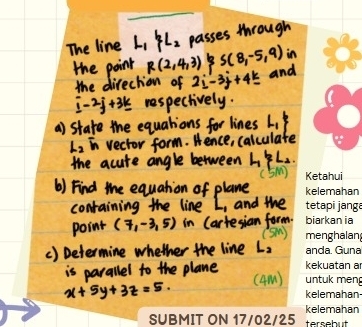 The line L₁ & L₂ passes through
the point R(2,4,3) & S(8,-5,9) in
the direction of 2i-3j+4k and
i-2j+3k respectively.
a) State the equations for lines L₁ &
L₂ in vector form. Hence, calculate
the acute angle between L₁ & L₂.
(5M)
b) Find the equation of plane
containing the line L₁ and the
point (7,-3,5) in Cartesian form.
(5M)
c) Determine whether the line L₂
is parallel to the plane
x+5y+3z=5.
(4M)
SUBMIT ON 17/02/25
Ketahui
kelemahan
tetapi
biarkan ia
anda.
kekuatan
untuk
kelemahan
kelemahan
tersebut